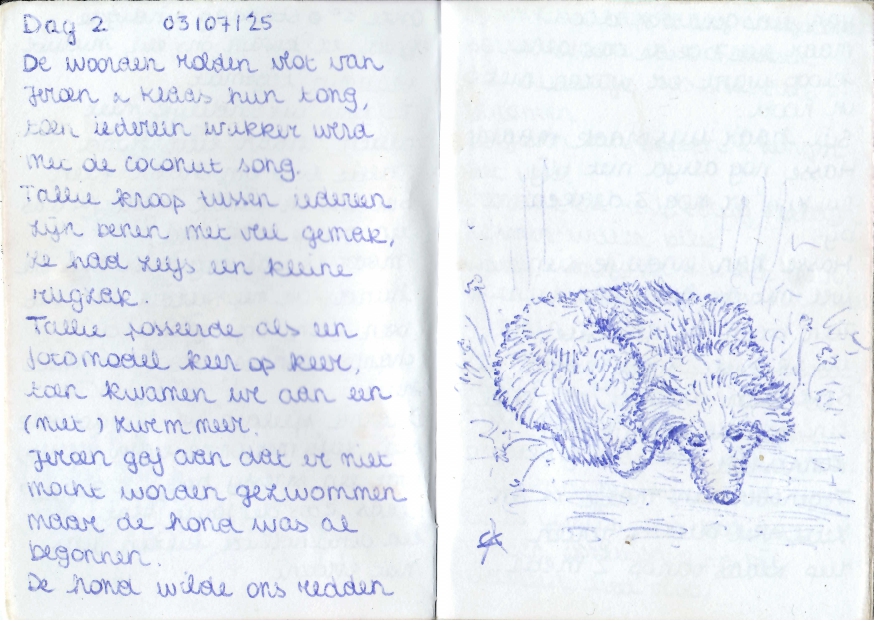 Dag 2 03107125
De woorden rolden vlot van
Jeroen & hun tong,
toen iedereen wakker werd
met de coconut song.
Tallie kroop tussen iedereen
zijn benen met veel gemak,
Ze had zelfs een kleine
rugzak.
Tallie poseerde als een
fotomodel keer op keer,
toen kwamen we aan een
(niet) zwemmeer.
Jeroen gaf aan dat er niet
mocht worden gezwommen
maar de hond was al
begonnen.
De hond wilde ons redden